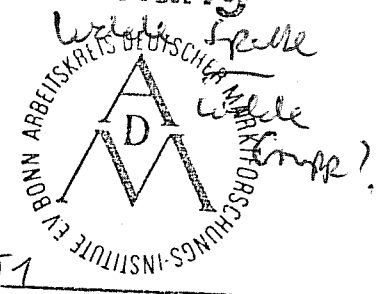 welche Spalte
welche
Gruppe?
ARBEITSKREIS DEUTSCHER MARKTFORSCHUNGS-INSTITUTE E.V. BONN
A
D
M